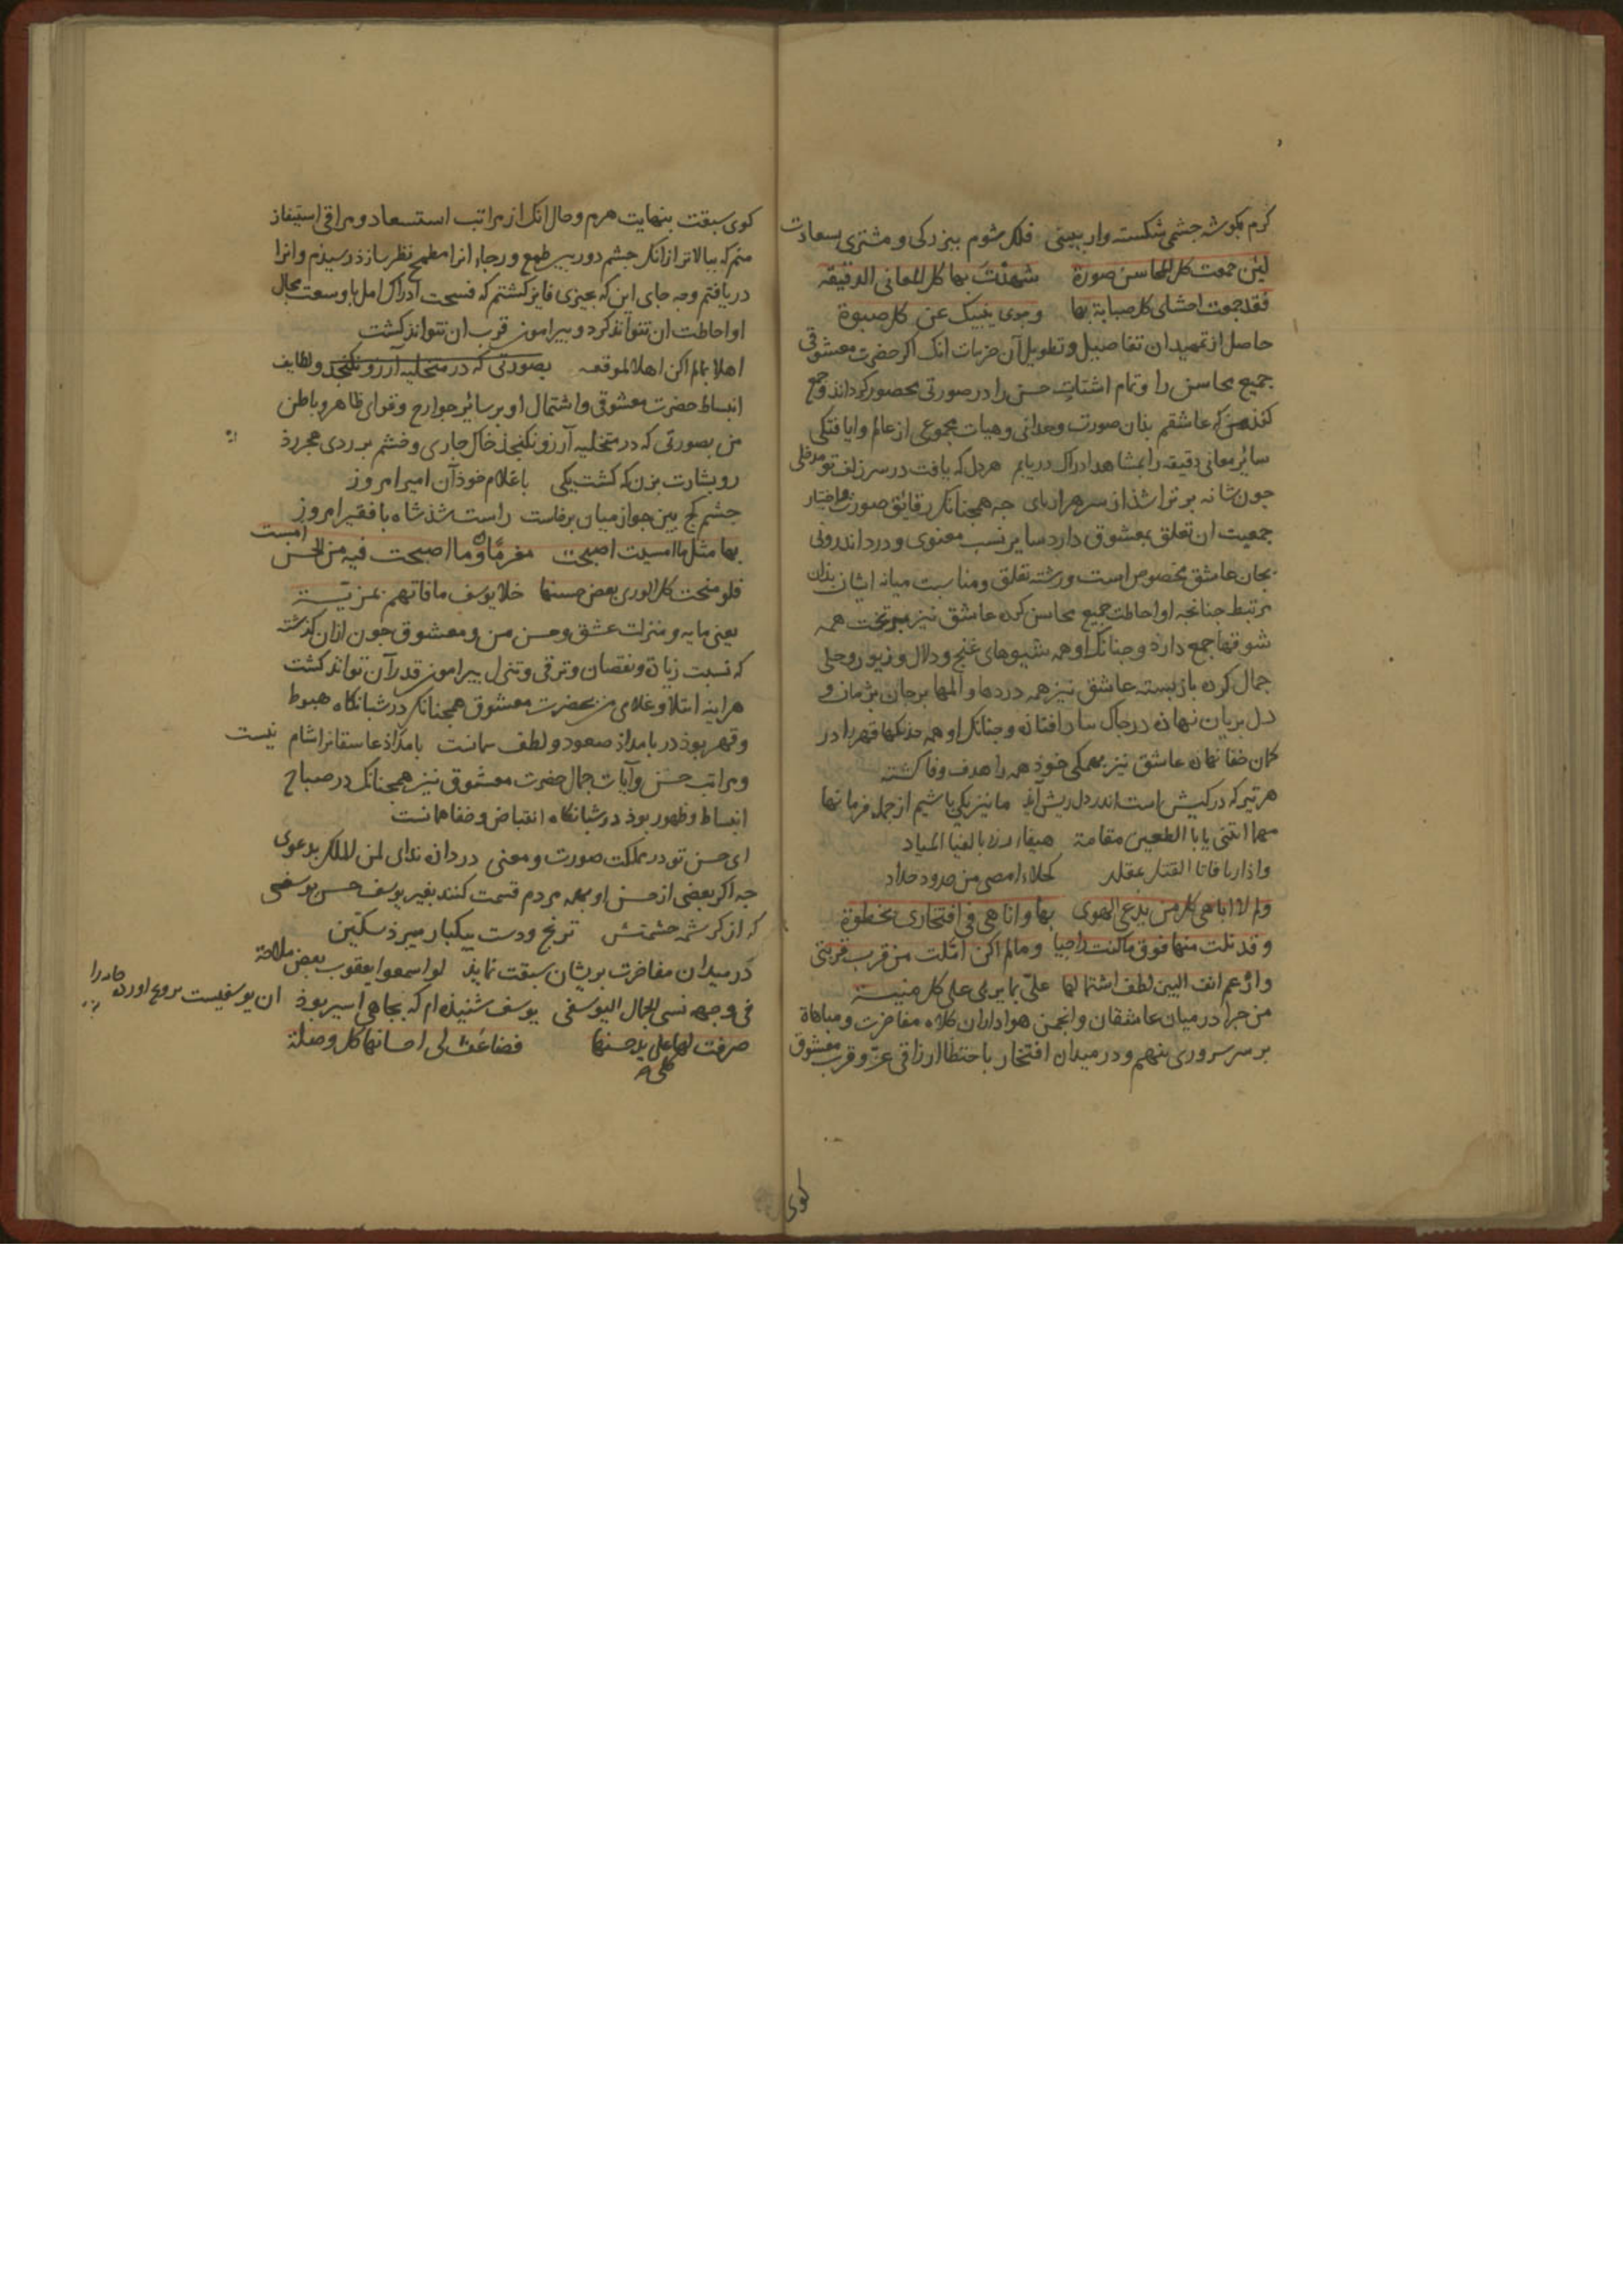 کرم بکوشه جشمی شکسته وار ببینی فلک شوم ببزرکی و مشتری بسعادت
لئن جمعت کل المحاسن صورة شهدت بها کل المعانی الدقیقه
فقد جمعت احشای کل صبابة بها وجدی ینبیک عن کل صبوة
حاصل از تمهید ان تفاصیل و تطویل آن جزیات انک اکر حضرت معشوقی
جمیع محاسن را و تمام اشتات حسن را در صورتی محصور کرداند و جمع
کند من که عاشقم بذان صورت وحدانی و هیات مجموعی از عالم
سائر معانی دقیقه را بمشاهد ادراک دریابم هر دل که یافت در سر زلف تو مدخلی
جون شانه بر تراشذ از سر هزار بای جه همجنانک رقائق صورت
جمعیت ان تعلق بمعشوق دارد سایر نسب معنوی و درد اندرونی
بجان عاشق مخصوص است و رشته تعلق و مناسبت میانه ایشان بذان
مرتبط جنانجه او احاطت جمیع محاسن کرده عاشق نیز همه
شوقها جمع دارد و جنانک او همه شیوهای غنج و دلال و زیور و حلی
جمال کرده باز بسته عاشق نیز همه دردها و المها بر جان بژمان و
دل بریان نهاده در خاک افتاده و جنانک او همه خدنکها قهر را در
کمان جفا نهاده عاشق نیز بهمکی خوذ همه را هدف وفا کشته
هر تیر که در کیش است اندر دل ریش آید ما نیز یکی باشیم از جمله قربانها
مقامة هیفاء
واذا کحلاء امضی من حدود حداد
ولم لا اباهی کل من یدعی الهوی بها واناهی فی افتخاری بحظوة
وقد نلت منها فوق ما کنت راجیا وما لم اکن املت من قرب قربتی
وارغم انف البین لطف اشتمالها علی بما یربی علی کل منیة
من جرا در میان عاشقان و انجمن هواداران کلاه مفاخرت و مباهاة
بر سر سروری بنهم و در میدان افتخار عز و قرب معشوق
کوی
کوی سبقت بنهایت هرم و حال انک از مراتب استسعاد و مراقی
منم که ببالاتر از انک جشم دوربین طمع و رجاء انرا مطمح نظر سازذ رسیذم و انرا
دریافتم وجه جای این که بجیزی فایز کشتم که فسحت ادراک امل با وسعت مجال
او احاطت ان نتواند کرد و بیرامون قرب ان نتواند کشت
اهلا بما لم اکن اهلا لموقعه بصورتی که در متخلیه آرزو نکنجد و لطایف
انبساط حضرت معشوقی و اشتمال او بر سائر جوارح و قوای ظاهر و باطن
من بصورتی که در متخلیه آرزو نکنجذ
رو بشارت بزن که کشت یکی با غلام خوذ آن امیر امروز
جشم کج بین جو از میان برخاست راست شذ شاه با فقیر امروز
بها مثل ما امسیت اصبحت مغرما وما اصبحت فیه من الحسن امست
فلو منحت کل الوری بعض حسنها خلا یوسف ما فاتهم بمزیة
یعنی مایه و منزلت عشق و حسن من و معشوق جون ازان کذشته
که نسبت زیادة و نقصان و ترقی و تنزل بیرامون قدر آن تواند کشت
هراینه من بحضرت معشوق همجنانک در شبانکاه هبوط
و قهر بوذ در بامداذ صعود و لطف بامداذ عاشقانرا شام نیست
و مراتب حسن و آیات جمال حضرت معشوق نیز همجنانک در صباح
انبساط و ظهور بوذ در شبانکاه انقباض و خفا همانست
ای حسن تو در مملکت صورت و معنی در داده ندای لمن الملک بدعوی
جه اکر بعضی از حسن او بهمه مردم قسمت کنند بغیر یوسف حسن یوسفی
که از کرشمه جشمش ترنج و دست بیکبار میبرذ سکین
در میدان مفاخرت بریشان سبقت نماید لو اسمعوا یعقوب بعض ملاحة
فی وجهه نسی الجمال الیوسفی یوسف شنیذه ام که بجاهی اسیر بوذ ان یوسفیست بر زنخ اورده جاه را
صرفت لها کلی علی ید حسنها فضاعف لی احسانها کل وصلة